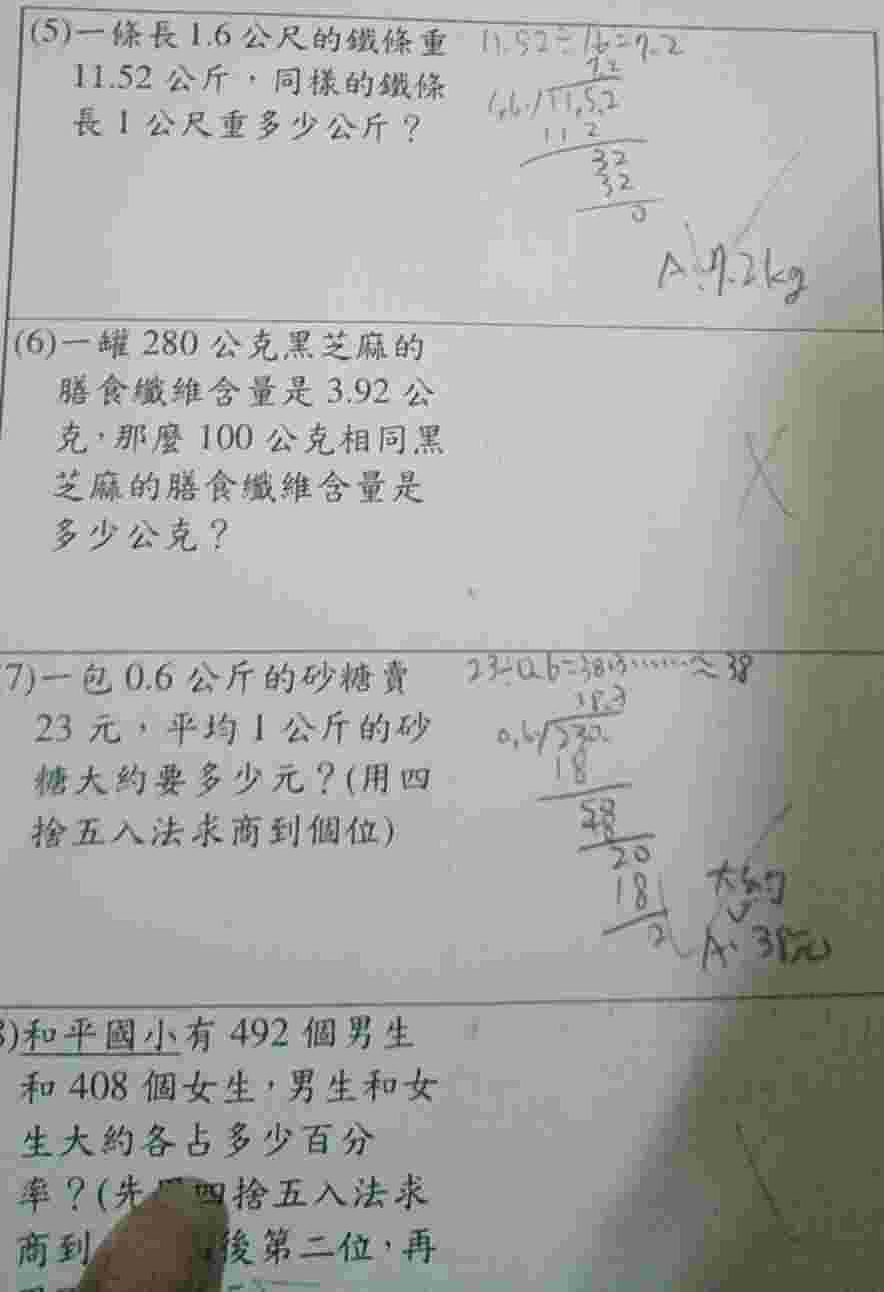 (5)一條長 1.6 公尺的鐵條重
11.52 公斤，同樣的鐵條
長 1 公尺重多少公斤？
11.52÷1.6=7.2
7.2
1.6.√11.5.2
11 2
32
32
0
A:7.2kg
(6)一罐 280 公克黑芝麻的
膳食纖維含量是 3.92 公
克，那麼 100 公克相同黑
芝麻的膳食纖維含量是
多少公克？
7)一包 0.6 公斤的砂糖賣
23 元，平均 1 公斤的砂
糖大約要多少元？(用四
捨五入法求商到個位)
23÷0.6=38.3……≈38
0.6.√230.
18
48
20
18
2
大約
A: 38元
)和平國小有 492 個男生
和 408 個女生，男生和女
生大約各占多少百分
率？(先 四捨五入法求
商到 後第二位，再